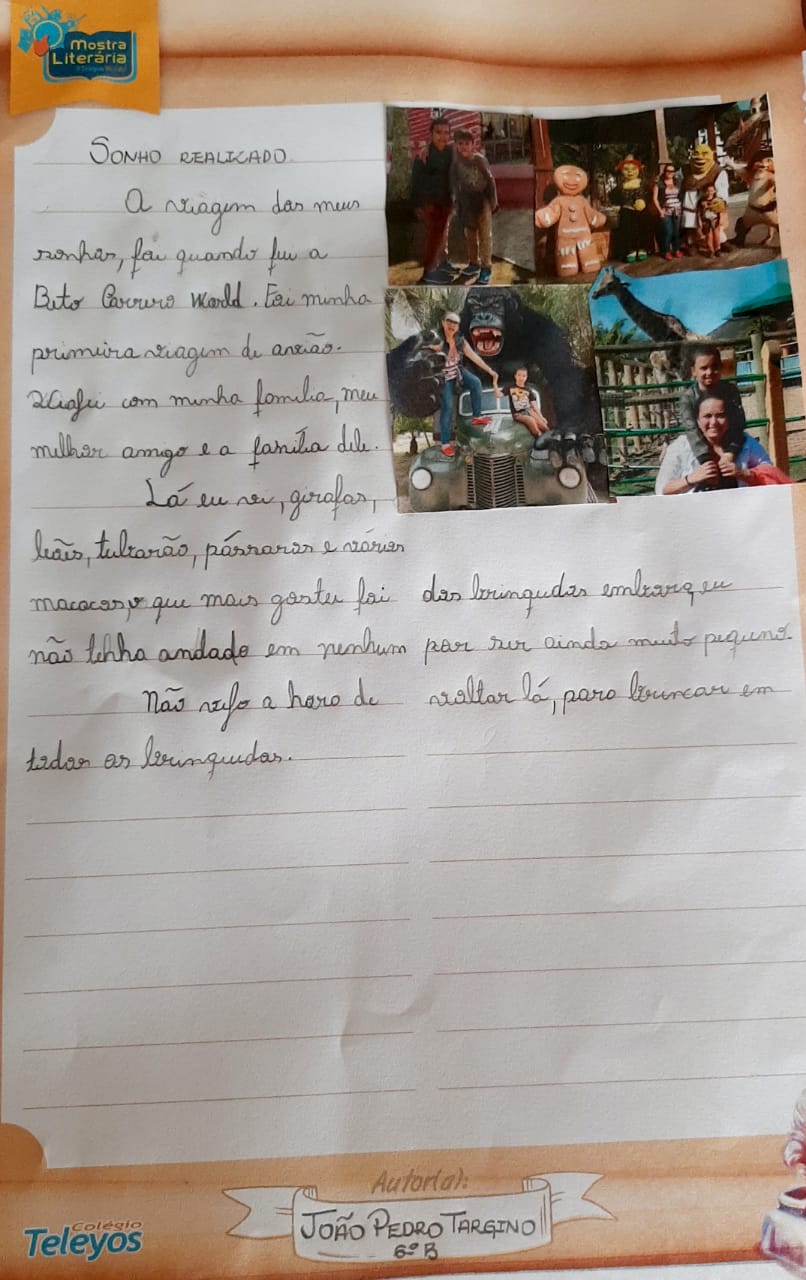 Mostra
Literária
SONHO REALIZADO
A viagem dos meus
sonhos, foi quando fui a
Beto Carrero World. Foi minha
primeira viagem de avião.
Viajei com minha família, meu
melhor amigo e a família dele.
Lá eu vi, girafas,
leões, tubarão, pássaros e vários
macacos, o que mais gostei foi dos brinquedos embora eu
não tenha andado em nenhum por ser ainda muito pequeno.
Não vejo a hora de voltar lá, para brincar em
todos os brinquedos.
Autor(a):
JOÃO PEDRO TARGINO
6º B
Colégio
Teleyos